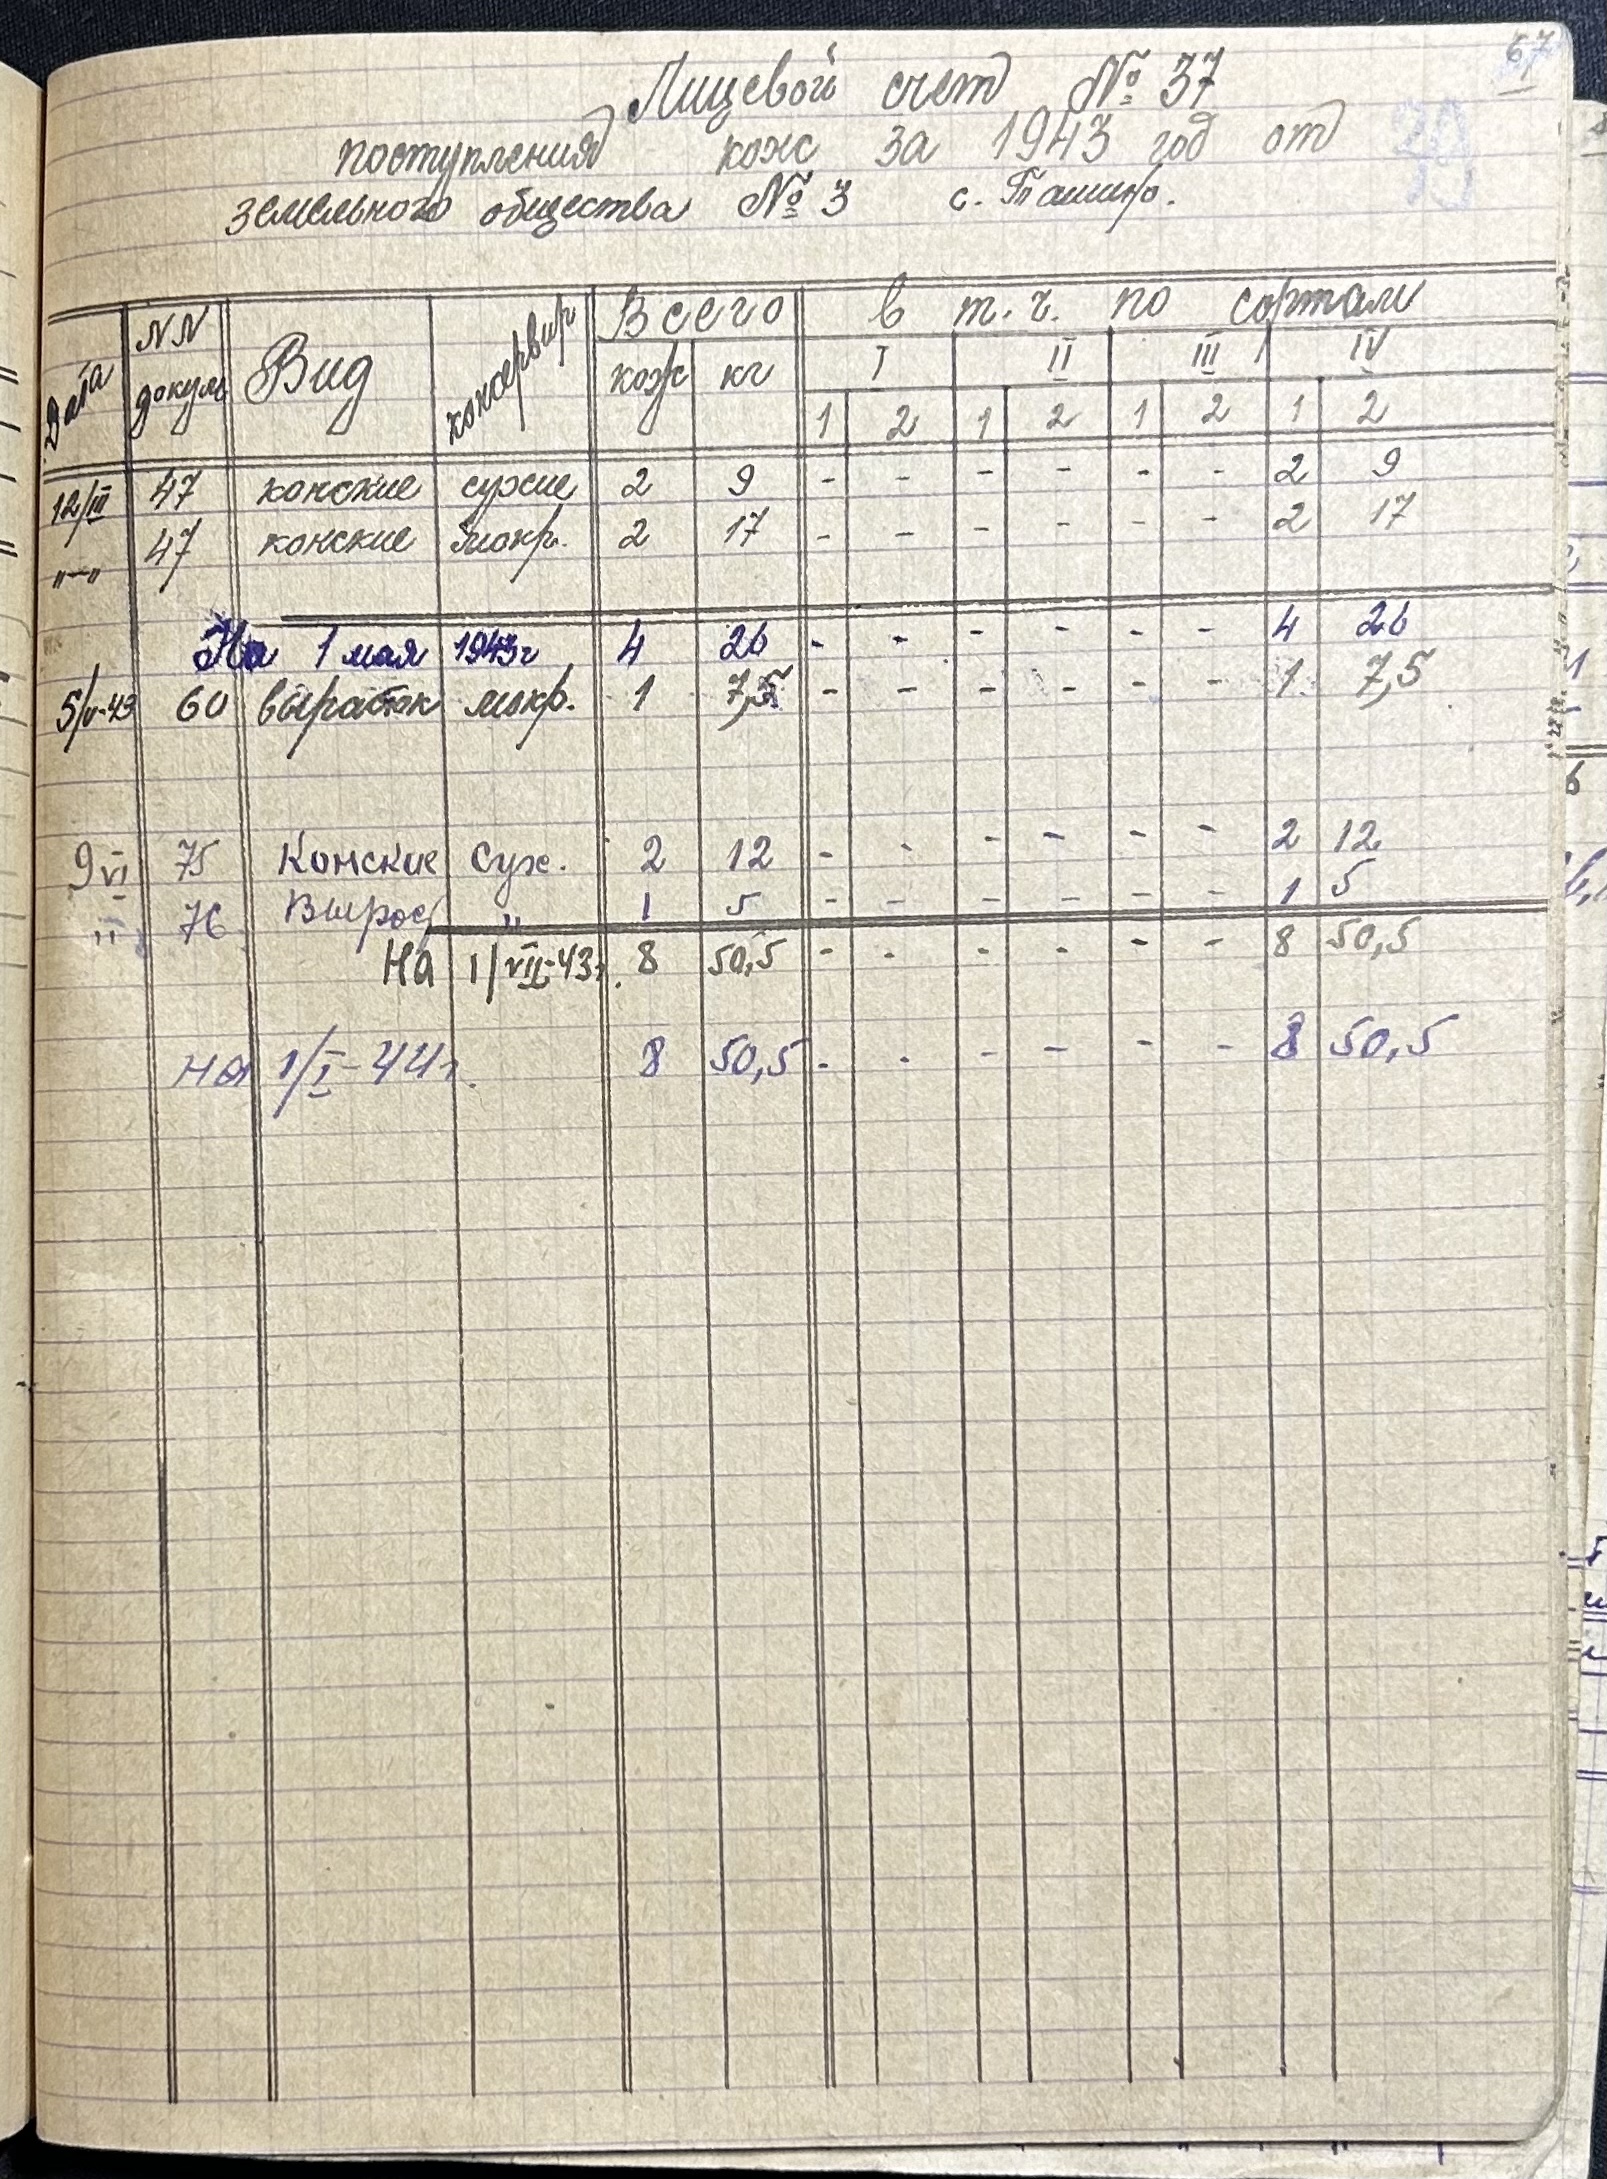 67
Лицевой счет № 37
поступления кож за 1943 год от
земельного общества № 3 с. Ташино.
Дата | NN докум | Вид | консервир | Всего | в т.ч. по сортам
кож | кг | I | II | III | IV
1 | 2 | 1 | 2 | 1 | 2 | 1 | 2
12/III | 47 | конские | сухие | 2 | 9 | - | - | - | - | - | - | 2 | 9
"—" | 47 | конские | мокр. | 2 | 17 | - | - | - | - | - | - | 2 | 17
На 1 мая 1943г | 4 | 26 | - | - | - | - | - | - | 4 | 26
5/V-43 | 60 | выросток | мокр. | 1 | 7,5 | - | - | - | - | - | - | 1 | 7,5
9 VI | 75 | Конские | Сух. | 2 | 12 | - | - | - | - | - | - | 2 | 12
" | 76 | Вырос | " | 1 | 5 | - | - | - | - | - | - | 1 | 5
На 1/VII-43г. | 8 | 50,5 | - | - | - | - | - | - | 8 | 50,5
на 1/I-44г. | 8 | 50,5 | - | - | - | - | - | - | 8 | 50,5